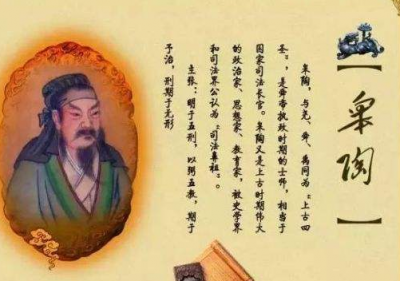 【皋陶】
皋陶，与尧、舜、禹同为“上古四
圣”，是舜帝执政时期的士师，相当于
国家司法长官。皋陶又是上古时期伟大
的政治家、思想家、教育家，被史学界
和司法界公认为“司法鼻祖”。
主张：明于五刑，以弼五教，期于
予治，刑期于无形